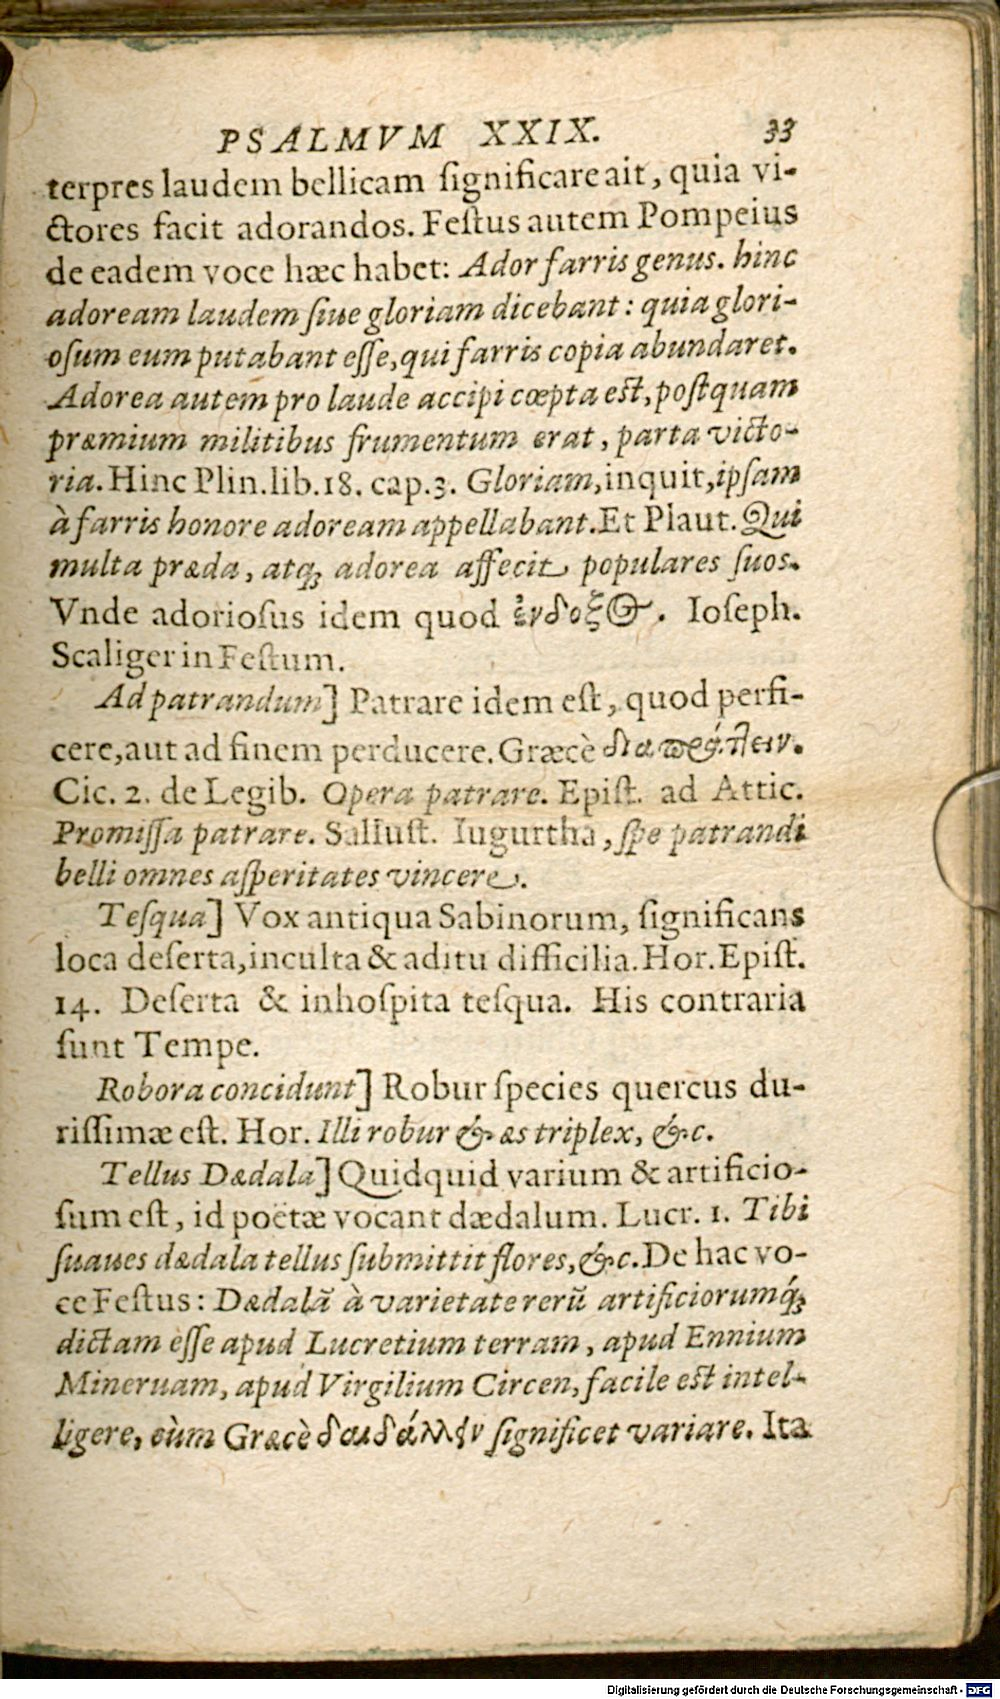 PSALMVM XXIX. 33
terpres laudem bellicam significare ait, quia vi-
ctores facit adorandos. Festus autem Pompeius
de eadem voce hæc habet: Ador farris genus. hinc
adoream laudem siue gloriam dicebant: quia glori-
osum eum putabant esse, qui farris copia abundaret.
Adorea autem pro laude accipi cœpta est, postquam
præmium militibus frumentum erat, parta victo-
ria. Hinc Plin. lib. 18. cap. 3. Gloriam, inquit, ipsam
à farris honore adoream appellabant. Et Plaut. Qui
multa præda, atq; adorea affecit populares suos.
Vnde adoriosus idem quod ἔνδοξος. Ioseph.
Scaliger in Festum.
Ad patrandum] Patrare idem est, quod perfi-
cere, aut ad finem perducere. Græcè διαπράττειν.
Cic. 2. de Legib. Opera patrare. Epist. ad Attic.
Promissa patrare. Sallust. Iugurtha, spe patrandi
belli omnes asperitates vincere.
Tesqua] Vox antiqua Sabinorum, significans
loca deserta, inculta & aditu difficilia. Hor. Epist.
14. Deserta & inhospita tesqua. His contraria
sunt Tempe.
Robora concidunt] Robur species quercus du-
rissimæ est. Hor. Illi robur & æs triplex, &c.
Tellus Dædala] Quidquid varium & artificio-
sum est, id poëtæ vocant dædalum. Lucr. 1. Tibi
suaues dædala tellus submittit flores, &c. De hac vo-
ce Festus: Dædalā à varietate rerū artificiorumq́;
dictam esse apud Lucretium terram, apud Ennium
Mineruam, apud Virgilium Circen, facile est intel-
ligere, cùm Græcè δαιδάλλειν significet variare. Ita
Digitalisierung gefördert durch die Deutsche Forschungsgemeinschaft - DFG